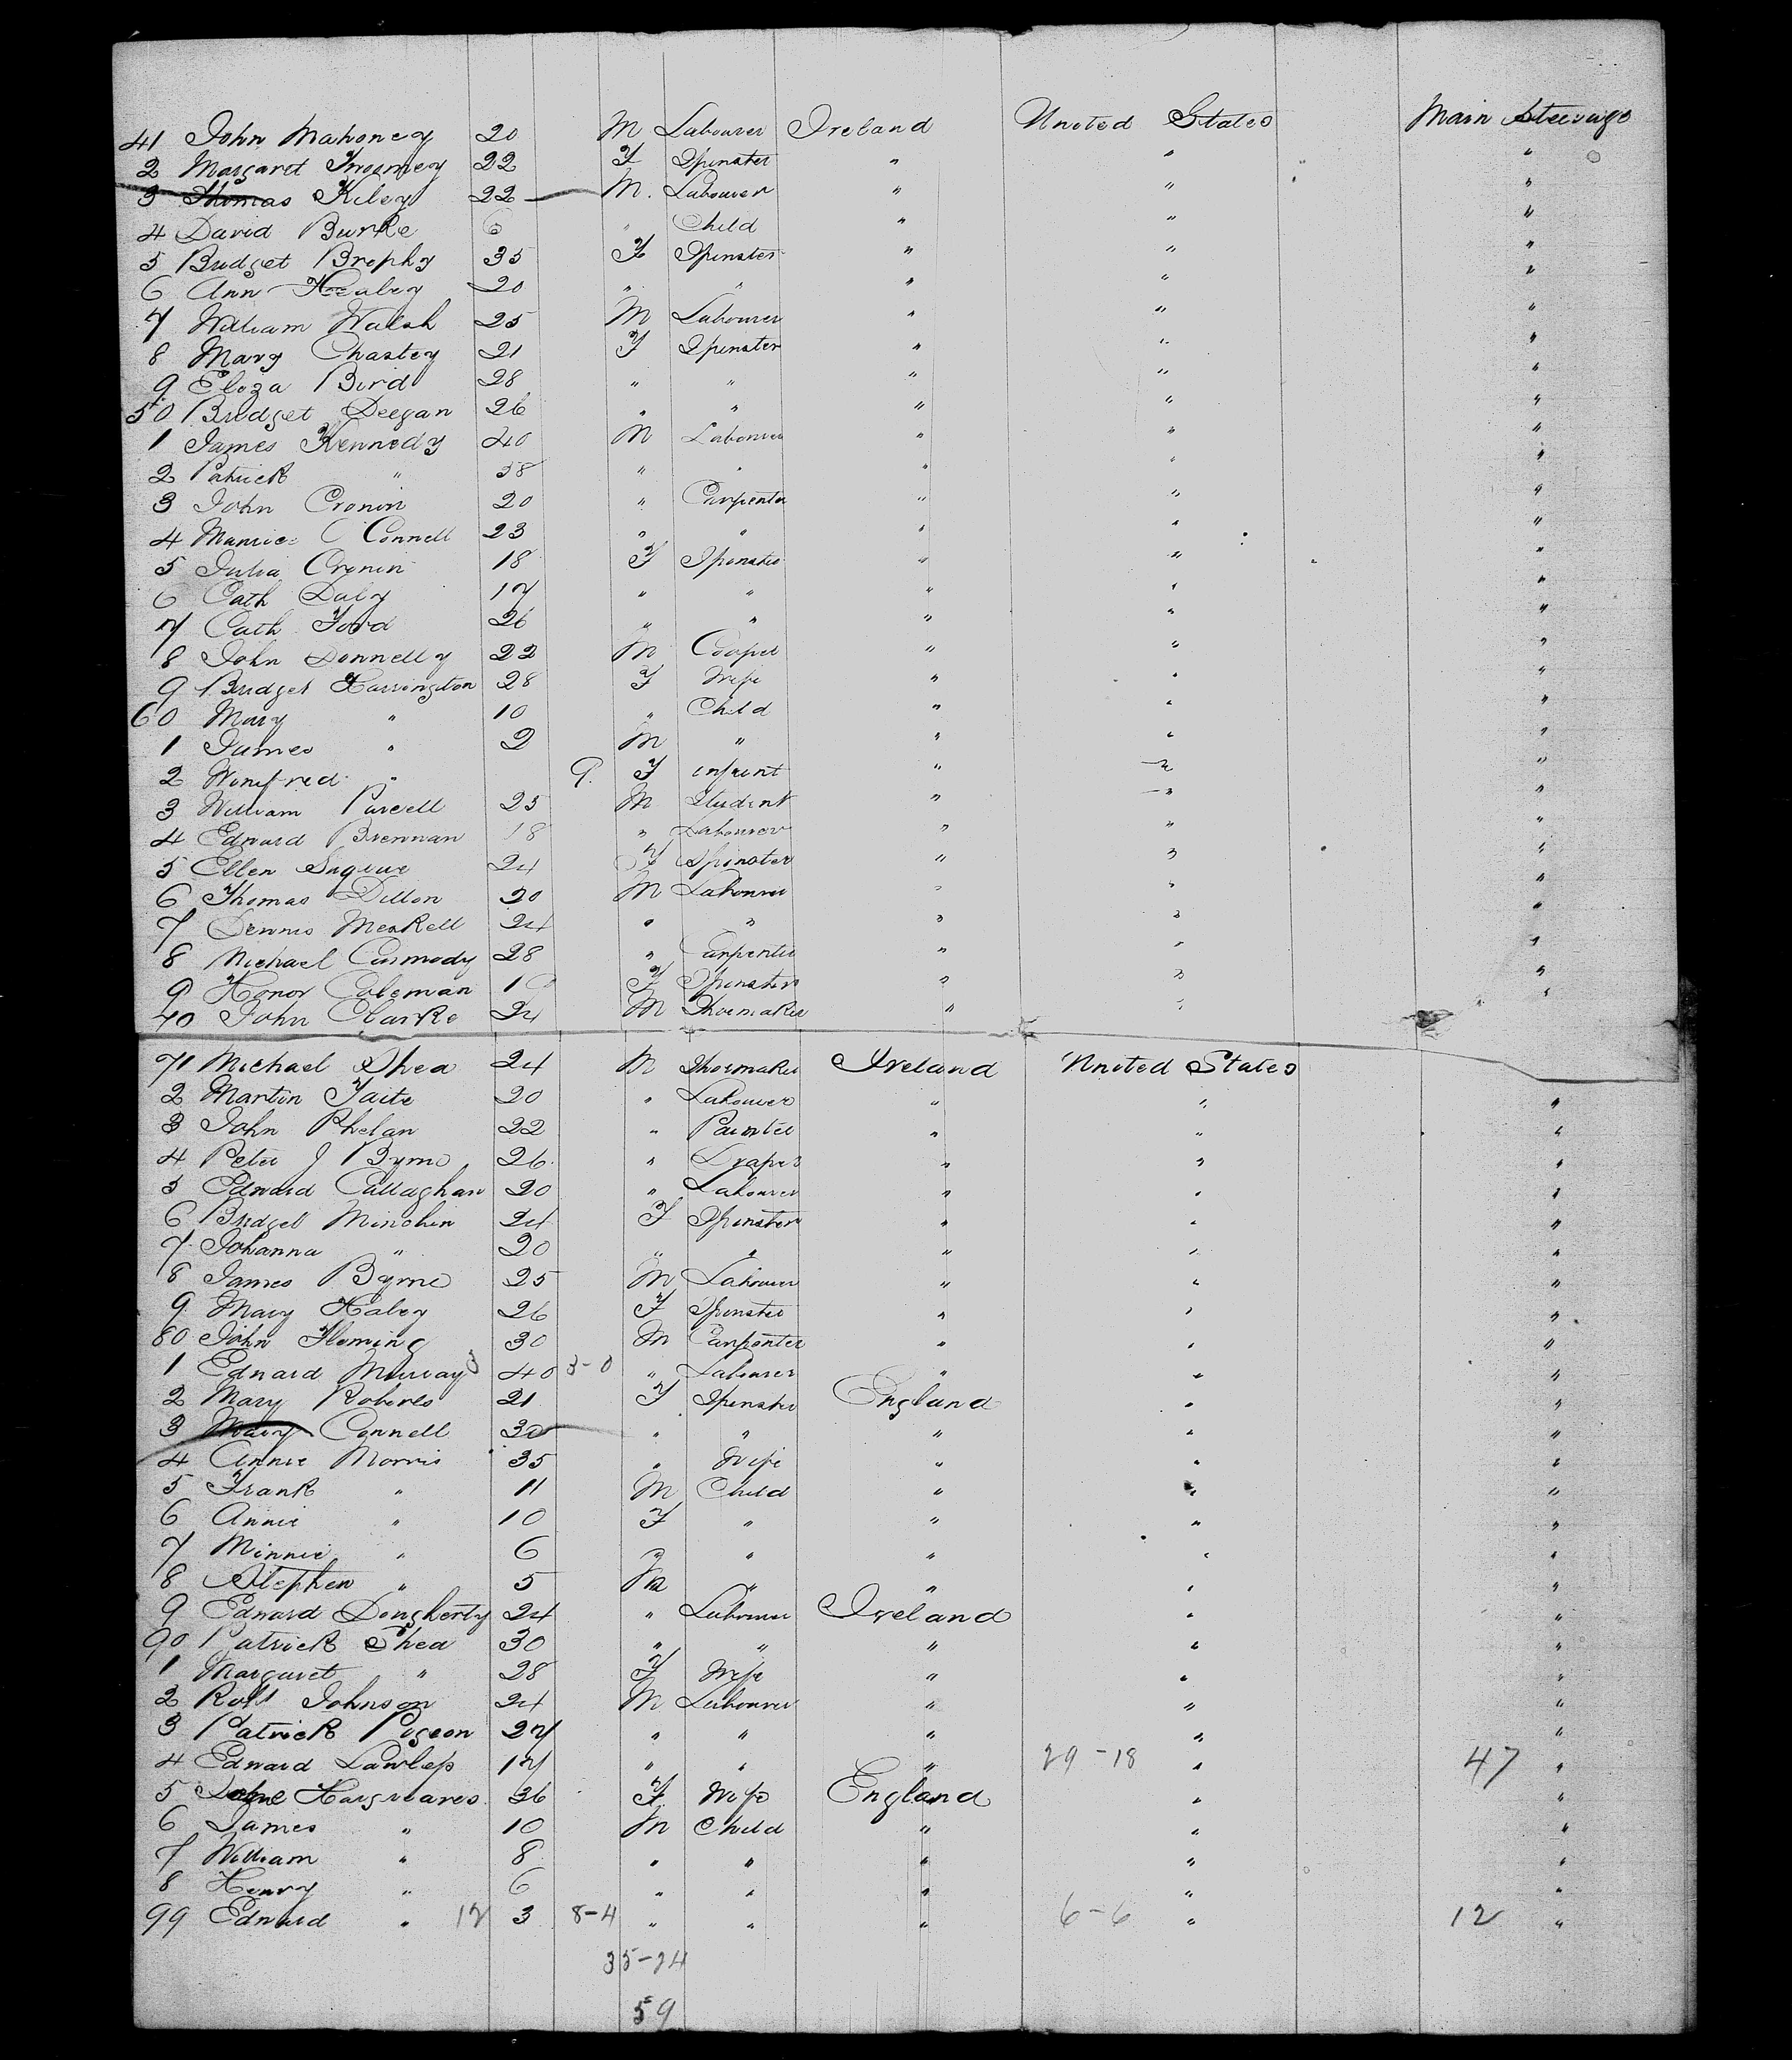 41 John Mahoney 20 M Labourer Ireland United States Main Steerage
2 Margaret Twomey 22 F Spinster " " "
3 Thomas Kiley 22 M. Labourer " " "
4 David Burke 6 " Child " " "
5 Bridget Brophy 35 F Spinster " " "
6 Ann Healey 20 " " " " "
7 William Walsh 25 M Labourer " " "
8 Mary Chastey 21 F Spinster " " "
9 Eliza Bird 28 " " " " "
50 Bridget Deegan 26 " " " " "
1 James Kennedy 40 M Labourer " " "
2 Patrick " 38 " " " " "
3 John Cronin 20 " Carpenter " " "
4 Maurice O Connell 23 " " " " "
5 Julia Cronin 18 F Spinster " " "
6 Cath Daly 17 " " " " "
7 Cath Ford 26 " " " " "
8 John Donnelly 22 M Cooper " " "
9 Bridget Harrington 28 F Wife " " "
60 Mary " 10 " Child " " "
1 James " 2 M " " " "
2 Winifred " 9. F infant " " "
3 William Purcell 25 M Student " " "
4 Edward Brennan 18 " Labourer " " "
5 Ellen 24 F Spinster " " "
6 Thomas Dillon 20 M Labourer " " "
7 Dennis Meskell 24 " " " " "
8 Michael Carmody 28 " Carpenter " " "
9 Honor Coleman F Spinster " " "
70 John Clarke 24 M Shoemaker " " "
71 Michael Shea 24 M Shoemaker Ireland United States
2 Martin Taite 20 " Labourer " " "
3 John Phelan 22 " Painter " " "
4 Peter J Byrne 26 " Draper " " "
5 Edward Callaghan 20 " Labourer " " "
6 Bridget Minchin 24 F Spinster " " "
7 Johanna " 20 " " " " "
8 James Byrne 25 M Labourer " " "
9 Mary Haley 26 F Spinster " " "
80 John Fleming 30 M Carpenter " " "
1 Edward Murray 40 3-0 " Labourer " " "
2 Mary Roberts 21 F Spinster England " "
3 Mary Connell 30 " " " " "
4 Annie Morris 35 " Wife " " "
5 Frank " 11 M Child " " "
6 Annie " 10 F " " " "
7 Minnie " 6 " " " " "
8 Stephen " 5 M " " " "
9 Edward Dougherty 24 " Labourer Ireland " "
90 Patrick Shea 30 " " " " "
1 Margaret " 28 F Wife " " "
2 Robt Johnson 24 M Labourer " " "
3 Patrick Pigeon 27 " " " " "
4 Edward 17 " " " 29-18 " 47 "
5 Hargreaves 36 F. Wife England " "
6 James " 10 M Child " " "
7 William " 8 " " " " "
8 Henry " 6 " " " " "
99 Edward " 12 3 8-4 " " " 6-6 " 12 "
35-24
59